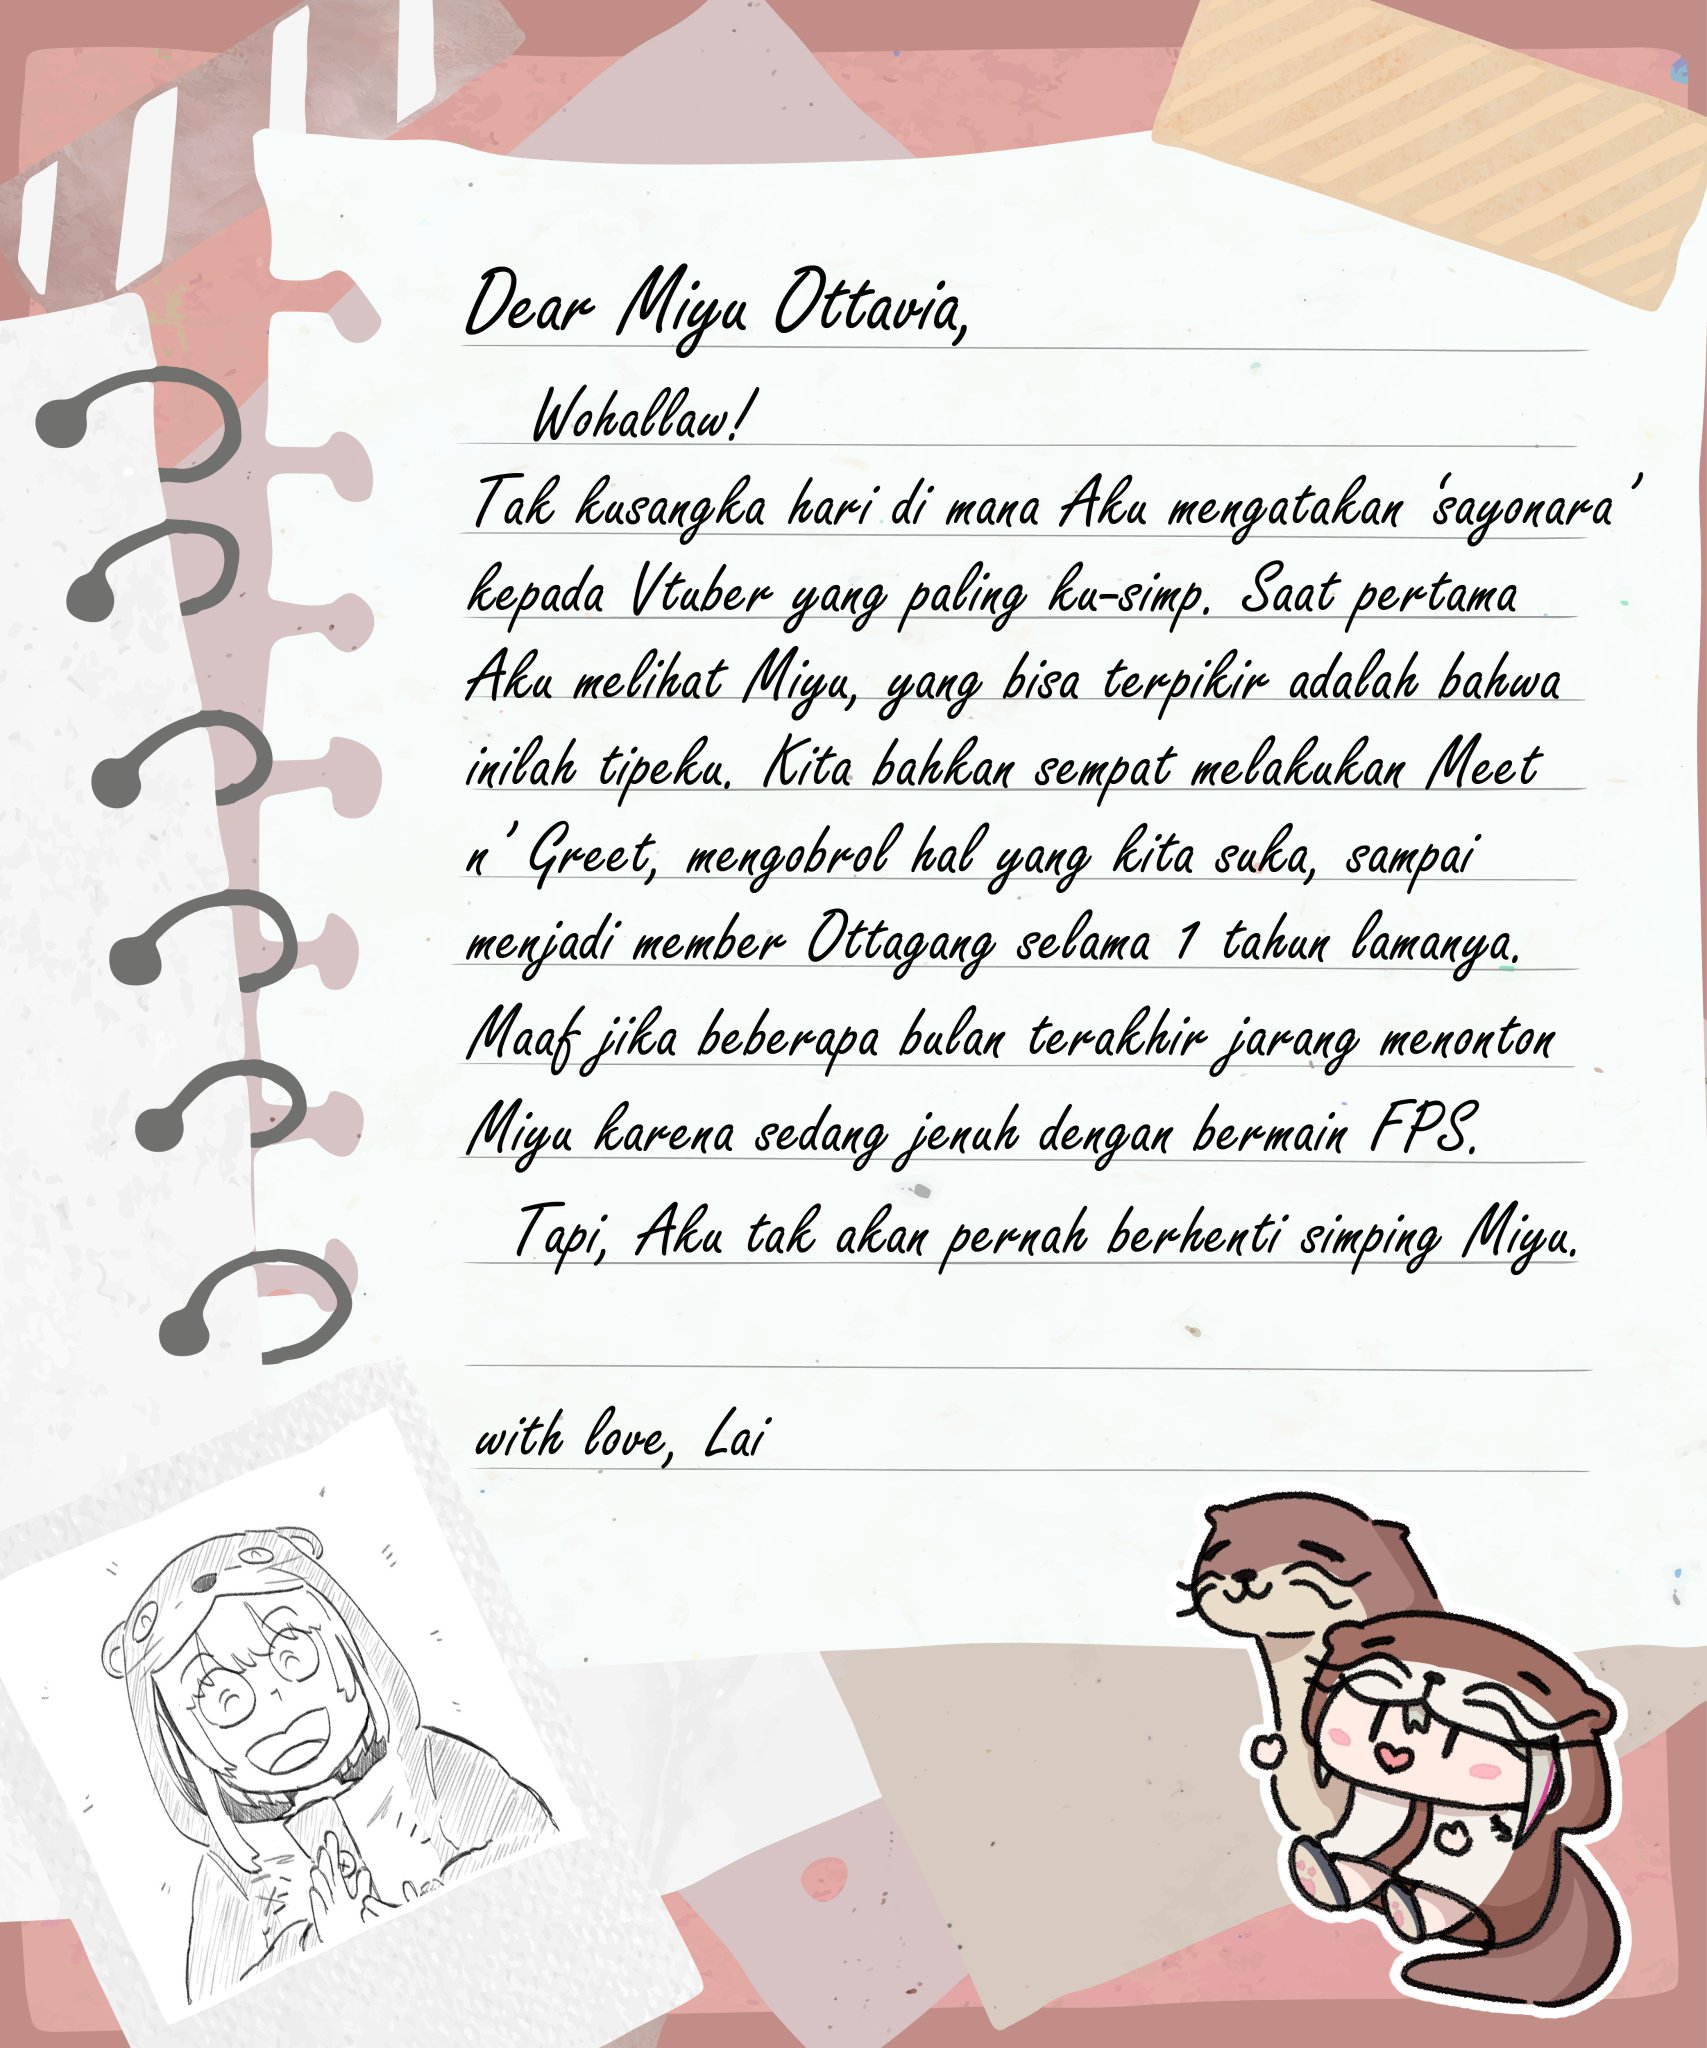 Dear Miyu Ottavia,
Wohallaw!
Tak kusangka hari di mana Aku mengatakan 'sayonara'
kepada Vtuber yang paling ku-simp. Saat pertama
Aku melihat Miyu, yang bisa terpikir adalah bahwa
inilah tipeku. Kita bahkan sempat melakukan Meet
n' Greet, mengobrol hal yang kita suka, sampai
menjadi member Ottagang selama 1 tahun lamanya.
Maaf jika beberapa bulan terakhir jarang menonton
Miyu karena sedang jenuh dengan bermain FPS.
Tapi, Aku tak akan pernah berhenti simping Miyu.
with love, Lai